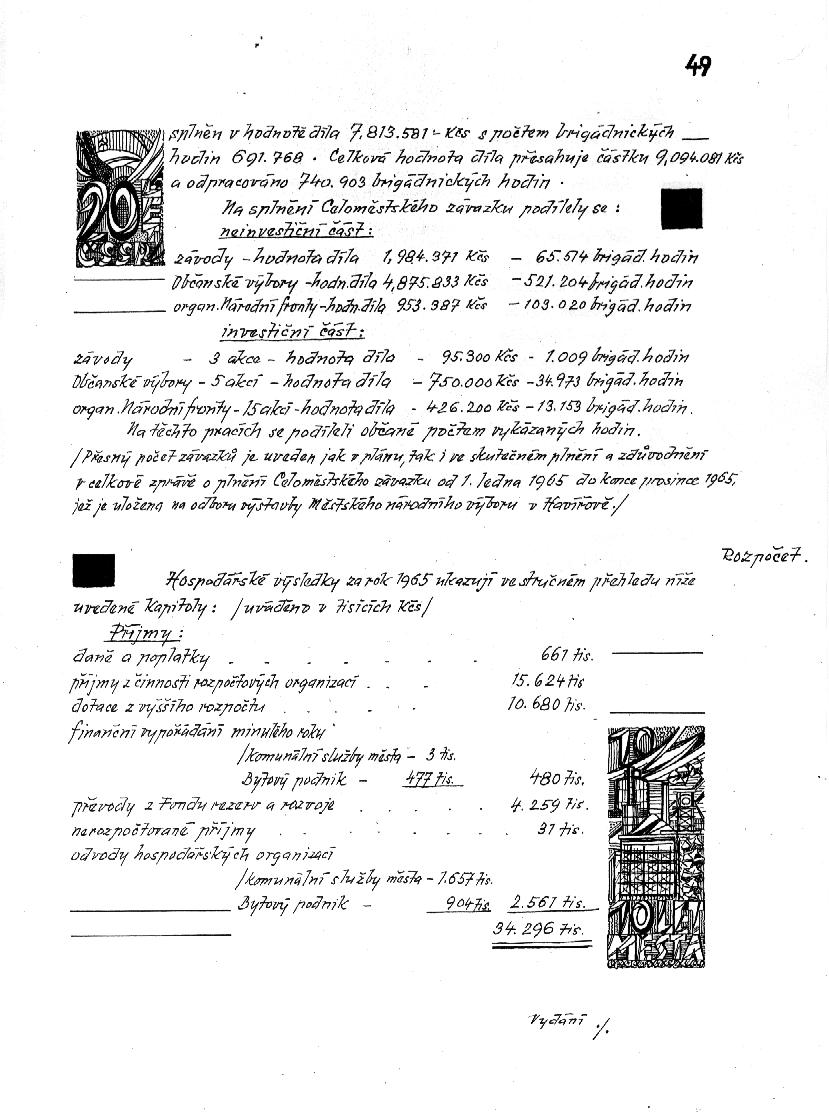 49
splněn v hodnotě díla 7,813.581- Kčs s počtem brigádnických
hodin 691.768. Celková hodnota díla přesahuje částku 9,094.081 Kčs
a odpracováno 740.903 brigádnických hodin.
20
LET
ČSSR
Na splnění Celoměstského závazku podílely se:
neinvestiční část:
závody - hodnota díla 1,984.371 Kčs - 65.574 brigád. hodin
Občanské výbory - hodn. díla 4,875.833 Kčs - 521.204 brigád. hodin
organ. Národní fronty - hodn. díla 953.387 Kčs - 103.020 brigád. hodin
investiční část:
závody - 3 akce - hodnota díla - 95.300 Kčs - 1.009 brigád. hodin
Občanské výbory - 5 akcí - hodnota díla - 750.000 Kčs - 34.973 brigád. hodin
organ. Národní fronty - 15 akcí - hodnota díla - 426.200 Kčs - 13.153 brigád. hodin.
Na těchto pracích se podíleli občané počtem vykázaných hodin.
/Přesný počet závazků je uveden jak v plánu, tak i ve skutečném plnění a zdůvodnění
v celkové zprávě o plnění Celoměstského závazku od 1. ledna 1965 do konce prosince 1965,
jež je uložena na odboru výstavby Městského národního výboru v Havířově./
Rozpočet.
Hospodářské výsledky za rok 1965 ukazují ve stručném přehledu níže
uvedené kapitoly: /uváděno v tisících Kčs/
Příjmy:
daně a poplatky . . . . . . . 661 tis.
příjmy z činnosti rozpočtových organizací . . . 15.624 tis
dotace z vyššího rozpočtu . . . . . 10.680 tis.
finanční vypořádání minulého roku
/komunální služby města - 3 tis.
Bytový podnik - 477 tis. 480 tis.
převody z Fondu rezerv a rozvoje . . . . 4.259 tis.
nerozpočtované příjmy . . . . . . . 31 tis.
odvody hospodářských organizací
/komunální služby města - 1.657 tis.
Bytový podnik - 904 tis. 2.561 tis.
34.296 tis.
10
10 LET
MĚSTA
Vydání ./.